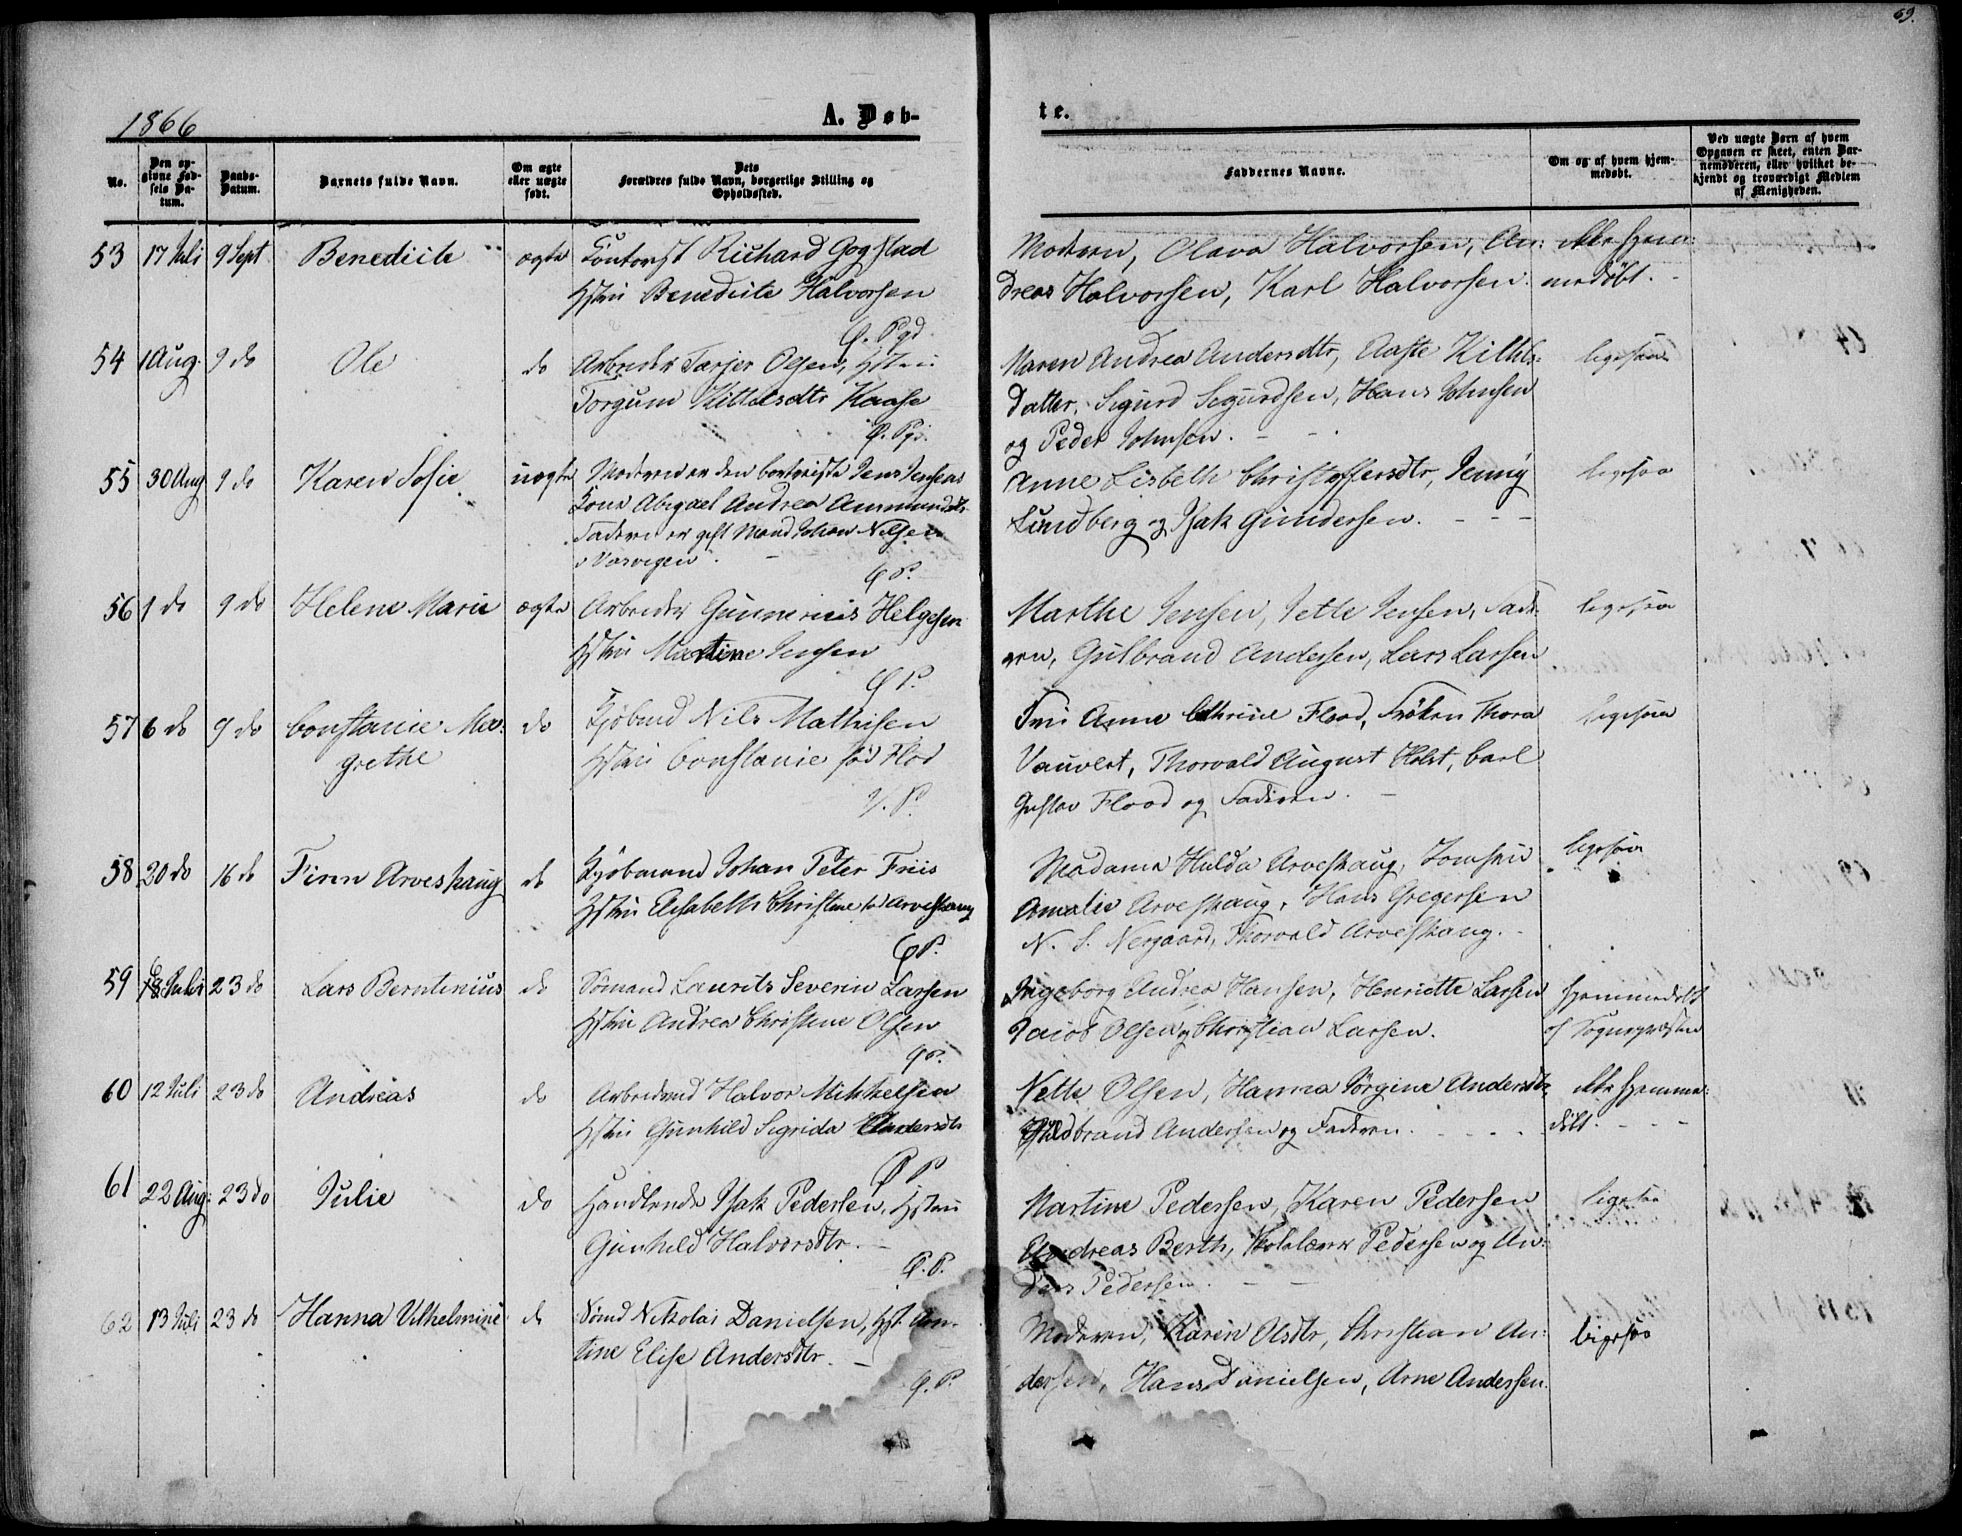 69.
1866
A. Døb-
te.
No.
Den op-
givne Fød-
sels Da-
tum.
Daabs-
Datum.
Barnets fulde Navn.
Om ægte
eller uægte
født.
Dets
Forældres fulde Navn, borgerlige Stilling og
Opholdssted.
Faddernes Navne.
Om og af hvem hjem-
medøbt.
Ved uægte Børn af hvem
Opgaven er skeet, enten Bar-
nemoderen, eller hvilket be-
kjendt og troværdigt Medlem
af Menigheden.
53 17 Juli 9 Sept. Benedicte ægte Kontorist Richard Gogstad
Hstru Benedicte Halvorsen
Moderen, Olava Halvorsen, An-
dreas Halvorsen, Karl Halvorsen.
ikke hjem-
medøbt.
G. Pgd.
54 1 Aug. 9 do Ole do Arbeider Tarjer Olsen, Hstru
Torgun Kittilsdtr Kaase
G. Pgd.
Maren Andrea Andersdtr, Aaste Kittils-
datter, Sigurd Sigurdsen, Hans Johnsen
og Peder Johnsen.
ligesaa
55 30 Aug 9 do Karen Sofie uægte Moderen er den bortreiste Jens Jensens
Kone Abigael Andrea Aanmundsdtr
Faderen er gift Mand Johan Nilsen
i Vasvigen.
G P.
Anne Lisbeth Christoffersdtr, Jenny
Lundberg og Isak Gundersen.
ligesaa
56 1 do 9 do Helene Marie ægte Arbeider Gunnerius Helgesen
Hstru Martine Jensen
G P.
Marthe Jensen, Jette Jensen, Fade-
ren, Gulbrand Andersen, Lars Larsen
ligesaa
57 6 do 9 do Constanie Mar-
grethe
do Kjøbmd Nils Mathisen
Hstru Constanie fød Flod
G. P.
Fru Anne Cathrine Flood, Frøken Thora
Vauvert, Thorvald August Holst, Carl
Gustav Flood og Faderen.
ligesaa
58 20 do 16 do Finn Arveshaug do Kjøbmand Johan Peter Friis
Hstru Elisabeth Christine fød Arveshaug
G P.
Madame Hulda Arveshaug, Jomfru
Amalie Arveshaug, Hans Gregersen
N. S. Nergaard, Thorvald Arveshaug.
ligesaa
59 18 Juli 23 do Lars Berntinius do Sømand Laurits Severin Larsen
Hstru Andrea Christine Olsen
G P.
Ingeborg Andrea Hansen, Henriette Larsen
Jacob Olsen og Christian Larsen.
Hjemmedøbt
af Sognepræsten
60 12 Juli 23 do Andreas do Arbeidsmd Halvor Mikkelsen
Hstru Gunhild Sigrida Andersdtr
G P
Nette Olsen, Hanna Jørgine Andersdtr,
Guldbrand Andersen og Faderen.
ikke hjemme-
døbt.
61 22 Aug. 23 do Julie do Handlende Isak Pedersen, Hstru
Gunhild Halvorsdtr.
G. P.
Martine Pedersen, Karen Pedersen
Andreas Berth, Skolelærer Pedersen og An-
ders Pedersen.
ligesaa
62 13 Juli 23 do Hanna Vilhelmine do Sømd Nikolai Danielsen, Hst. An-
tine Elise Andersdtr.
G. P.
Moderen, Karen Olsdtr, Christian An-
dersen, Hans Danielsen, Arne Andersen.
ligesaa